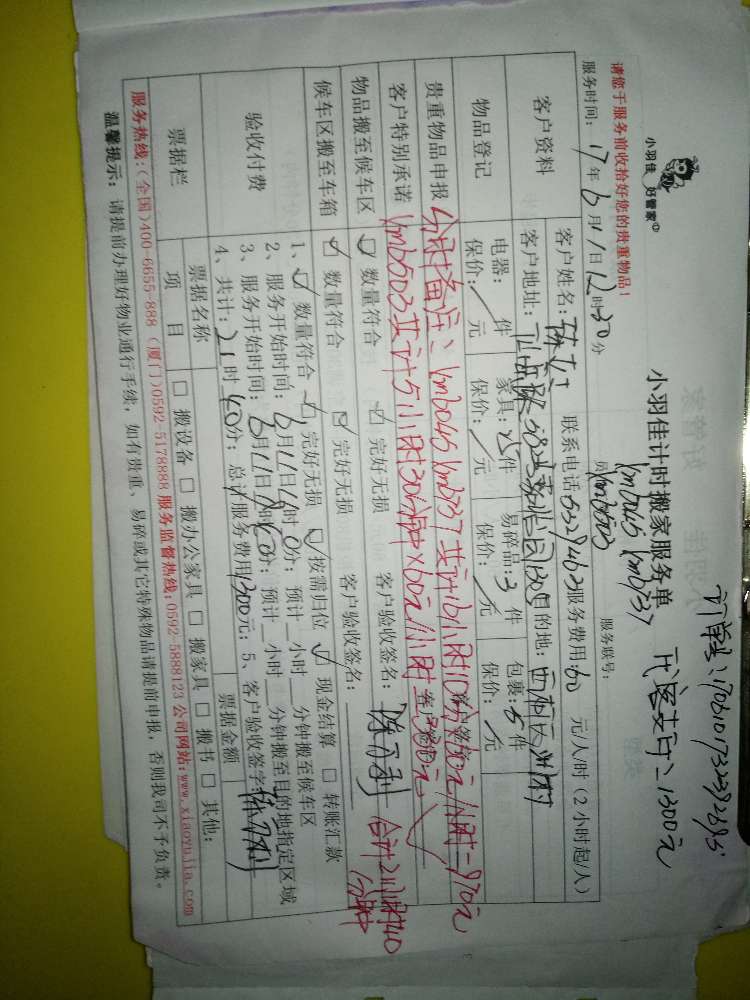 小羽佳 好管家
请您于服务前收拾好您的贵重物品!
小羽佳计时搬家服务单
kmb045 kmb737
kmb503
服务联号:
已签支付:1300元
服务时间: 17年6月11日12时30分
客户资料
客户姓名:
联系电话
服务费用:60 元/人/时(2小时起/人)
客户地址:
目的地:
物品登记
电器: / 件
家具: 件
易碎品:3 件
包裹:5 件
保价: / 元
保价: / 元
保价: / 元
保价: / 元
贵重物品申报
分时备注:kmb045 kmb737共计16小时10分钟×60元/小时=970元
客户特别承诺
kmb503共计5小时30分钟×60元/小时=330元
物品搬至候车区
数量符合
完好无损
客户验收签名:
合计21小时40分钟
候车区搬至车箱
数量符合
完好无损
客户验收签名:
验收付费
1、 数量符合 完好无损 按需归位 现金结算 转账汇款
2、服务开始时间: 6月11日 时0分: 预计 小时 分钟搬至候车区
3、服务开始时间: 6月11日 时 分: 预计 小时 分钟搬至目的地指定区域
4、共计: 21时40分: 总计服务费用1300元; 5、客户验收签字
票据栏
票据名称
票据金额
项 目
搬设备 搬办公家具 搬家具 搬书 其他:
服务热线:(全国)400-6655-888 (厦门)0592-5178888 服务监督热线:0592-5888123 公司网站:www.xiaoyujia.com
温馨提示: 请提前办理好物业通行手续, 如有贵重、易碎或其它特殊物品请提前申报, 否则我司不予负责。